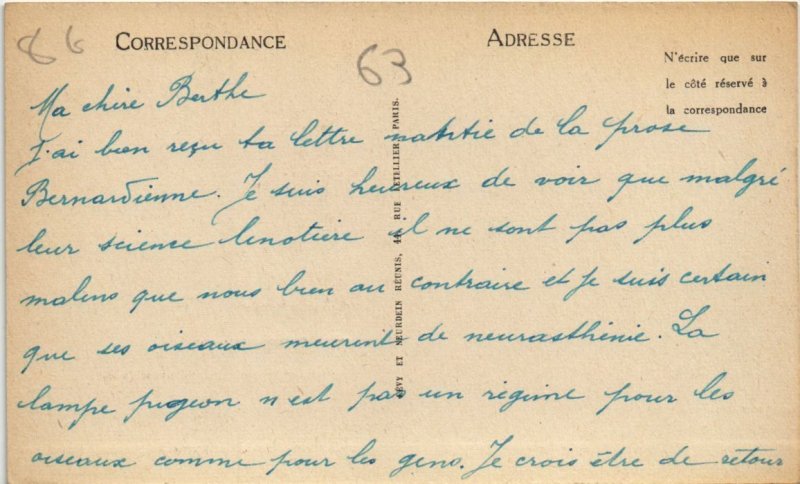 86
CORRESPONDANCE
63
ADRESSE
N'écrire que sur
le côté réservé à
la correspondance
Ma chère Berthe
J'ai bien reçu ta lettre de la prose
Bernardienne. Je suis heureux de voir que malgré
leur science linotiere il ne sont pas plus
malins que nous bien au contraire et je suis certain
que ses oiseaux meurent de neurasthénie. La
lampe pigeon n'est pas un régime pour les
oiseaux comme pour les gens. Je crois être de retour
LÉVY ET NEURDEIN RÉUNIS, 44, RUE LETELLIER, PARIS.